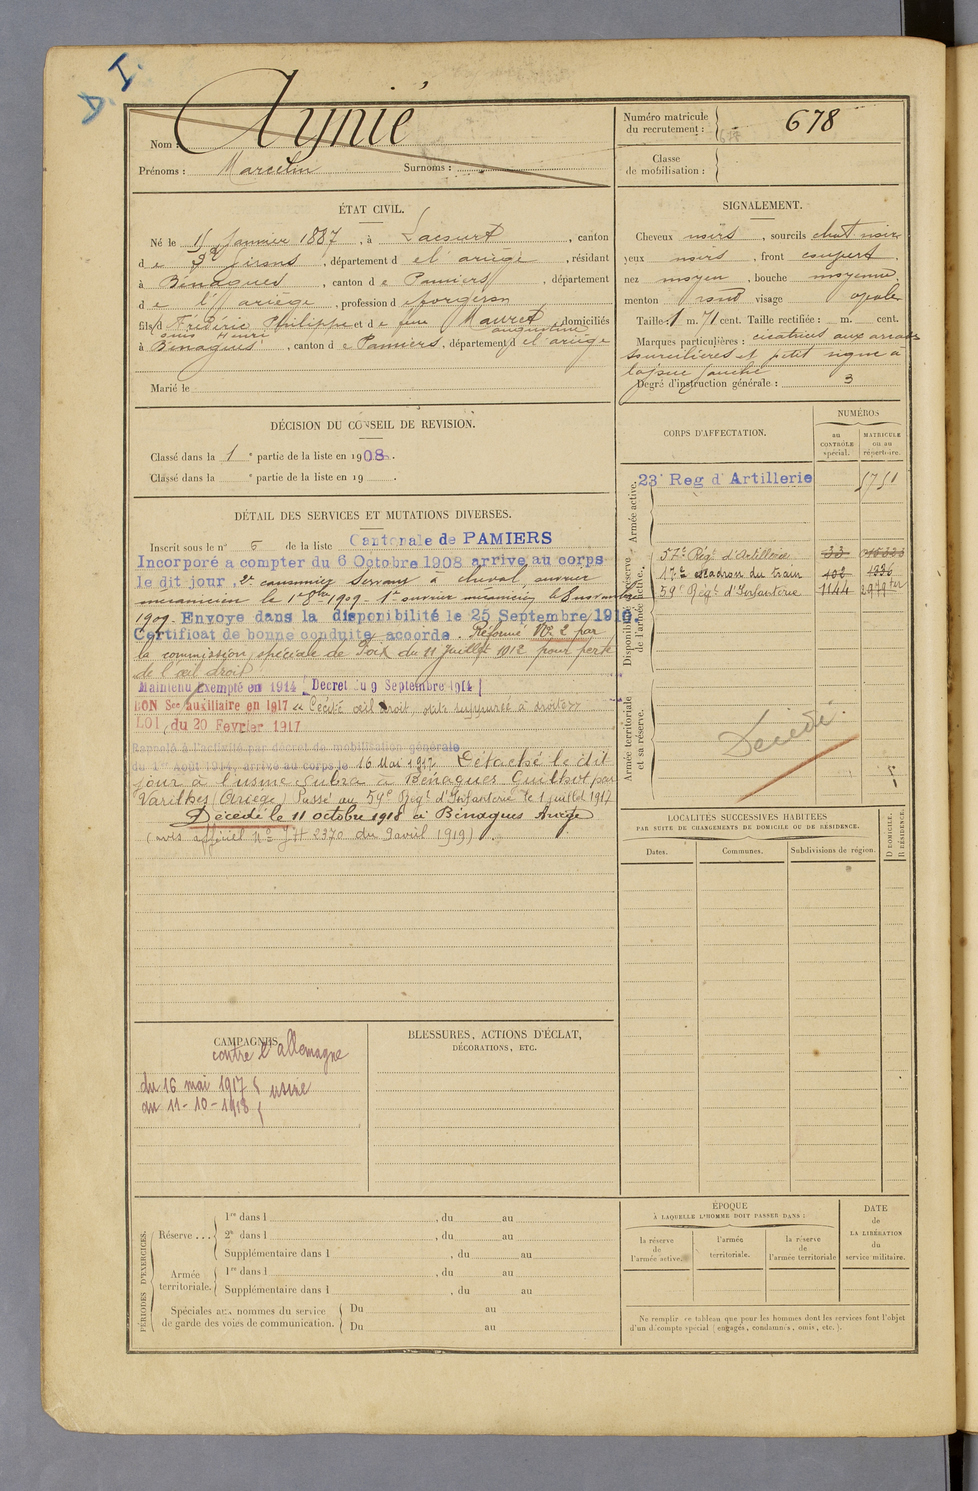 D. I.
Nom : Aynié
Prénoms : Marcelin Surnoms :
Numéro matricule du recrutement : 678
Classe de mobilisation :
ÉTAT CIVIL.
Né le 15 Janvier 1887, à Lacourt, canton
de St Girons, département de l'ariège, résidant
à Bénagues, canton de Pamiers, département
de l'ariège, profession de forgeron
fils d Frédéric Philippe et de feue Mauret augustine domiciliés
à Bénagues, canton de Pamiers, département d el'ariège
Marié le
SIGNALEMENT.
Cheveux noirs, sourcils chat noir
yeux noirs, front
nez moyen, bouche moyenne
menton rond visage ovale
Taille : 1 m. 71 cent. Taille rectifiée : m. cent.
Marques particulières : cicatrices aux arcades
sourcilières et petit signe à
la joue gauche
Degré d'instruction générale : 3
DÉCISION DU CONSEIL DE REVISION.
Classé dans la 1e partie de la liste en 1908.
Classé dans la e partie de la liste en 19 .
DÉTAIL DES SERVICES ET MUTATIONS DIVERSES.
Inscrit sous le n° 5 de la liste Cantonale de PAMIERS
Incorporé a compter du 6 Octobre 1908 arrive au corps
le dit jour, 2e canonnier servant à cheval, ouvrier
mécanicien le 1er 8bre 1909. 1er ouvrier mécanicien le 8 novembre
1909. Envoye dans la disponibilité le 25 Septembre 1910
Certificat de bonne conduite accorde. Réformé No 2 par
la commission spéciale de Foix du 11 Juillet 1912 pour perte
de l'œil droit
Maintenu Exempté en 1914 [Decret du 9 Septembre 1914]
BON Sce auxiliaire en 1917 Cécité œil droit
LOI du 20 Fevrier 1917
Rappelé à l'activité par décret de mobilisation générale
du 1er Août 1914, arrive au corps le 16 Mai 1917 Détaché le dit
jour à l'usine Subra à Bénagues par
Varilhes (Ariège) Passé au 59e Regt d'Infanterie le 1 juillet 1917
Décédé le 11 octobre 1918 à Bénagues Ariège
(avis officiel No 2370 du 9 avril 1919)
CORPS D'AFFECTATION.
NUMÉROS
au CONTRÔLE spécial.
MATRICULE ou au répertoire.
Armée active.
23e Reg d'Artillerie 5751
Disponibilité et réserve de l'armée active.
57e Régt d'Artillerie 33
17e escadron du train 102 1936
59e Regt d'Infanterie 1144
Armée territoriale et sa réserve.
Décédé
LOCALITÉS SUCCESSIVES HABITÉES
PAR SUITE DE CHANGEMENTS DE DOMICILE OU DE RÉSIDENCE.
Dates.
Communes.
Subdivisions de région.
D DOMICILE.
R RÉSIDENCE.
CAMPAGNES.
contre l'allemagne
du 16 mai 1917 usine
au 11-10-1918
BLESSURES, ACTIONS D'ÉCLAT,
DÉCORATIONS, ETC.
PÉRIODES D'EXERCICES.
Réserve ...
1re dans l , du au
2e dans l , du au
Supplémentaire dans l , du au
Armée territoriale.
1re dans l , du au
Supplémentaire dans l , du au
Spéciales aux hommes du service
de garde des voies de communication.
Du au
Du au
ÉPOQUE
À LAQUELLE L'HOMME DOIT PASSER DANS :
la réserve de l'armée active.
l'armée territoriale.
la réserve de l'armée territoriale
DATE
de
LA LIBÉRATION
du
service militaire.
Ne remplir ce tableau que pour les hommes dont les services font l'objet
d'un décompte spécial (engagés, condamnés, omis, etc.).